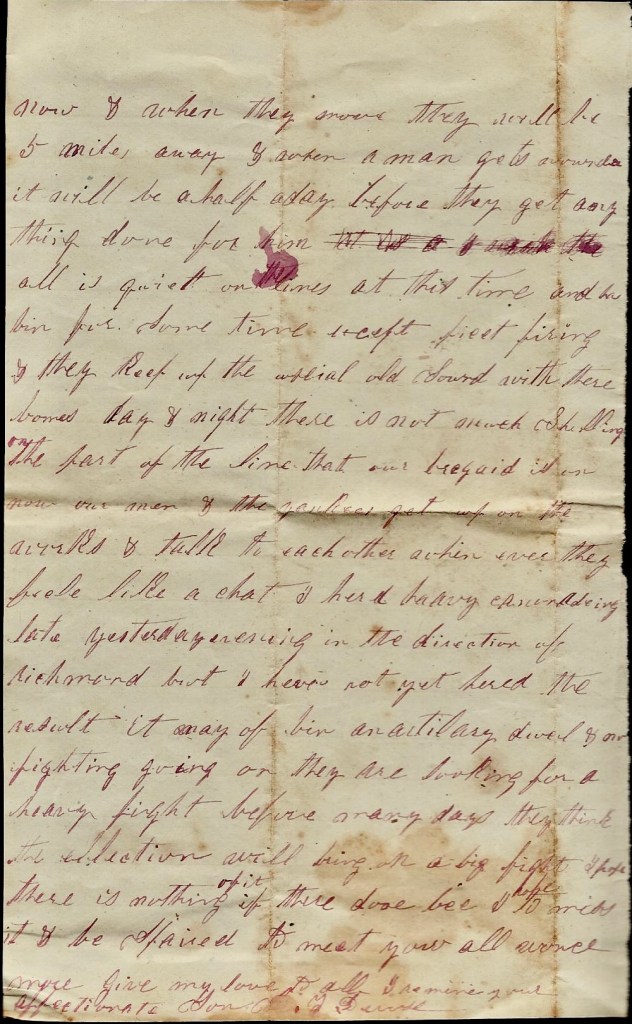 now & when they move they will be
5 miles away & when a man gets wounde
it will be a half a day before they get any
thing done for him
all is quiett on the lines at this time and ha
bin for some time except picet firing
& they keep up the useial old sound with there
bomes day & night there is not much shelling
on the part of the line that our brigaid is on
now our men & the yankees get up on the
works & talk to each other when ever they
feele like a chat I herd heavy canonadeing
late yesterday evening in the direction of
Richmond but I have not yet hered the
result it may of bin an artilary duel & no
fighting going on they are looking for a
heavy fight before many days they think
the ellection will bring on a big fight I hope
there is nothing of it if there dose bee I hope to miss
it & be spaired to meet you all wonce
more give my love to all I remane your
affectionate Son